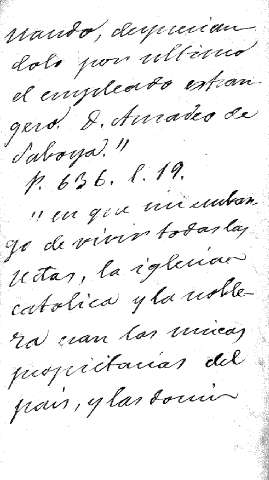 nando, despreciando
dolo por ultimo
el empleado estran-
gero. D. Amadeo de
Saboya."
P. 636. l. 19.
"en que sin embar-
go de vivir todas las
sectas, la iglesia
catolica y la noble-
za eran las unicas
propietarias del
pais, y las domi